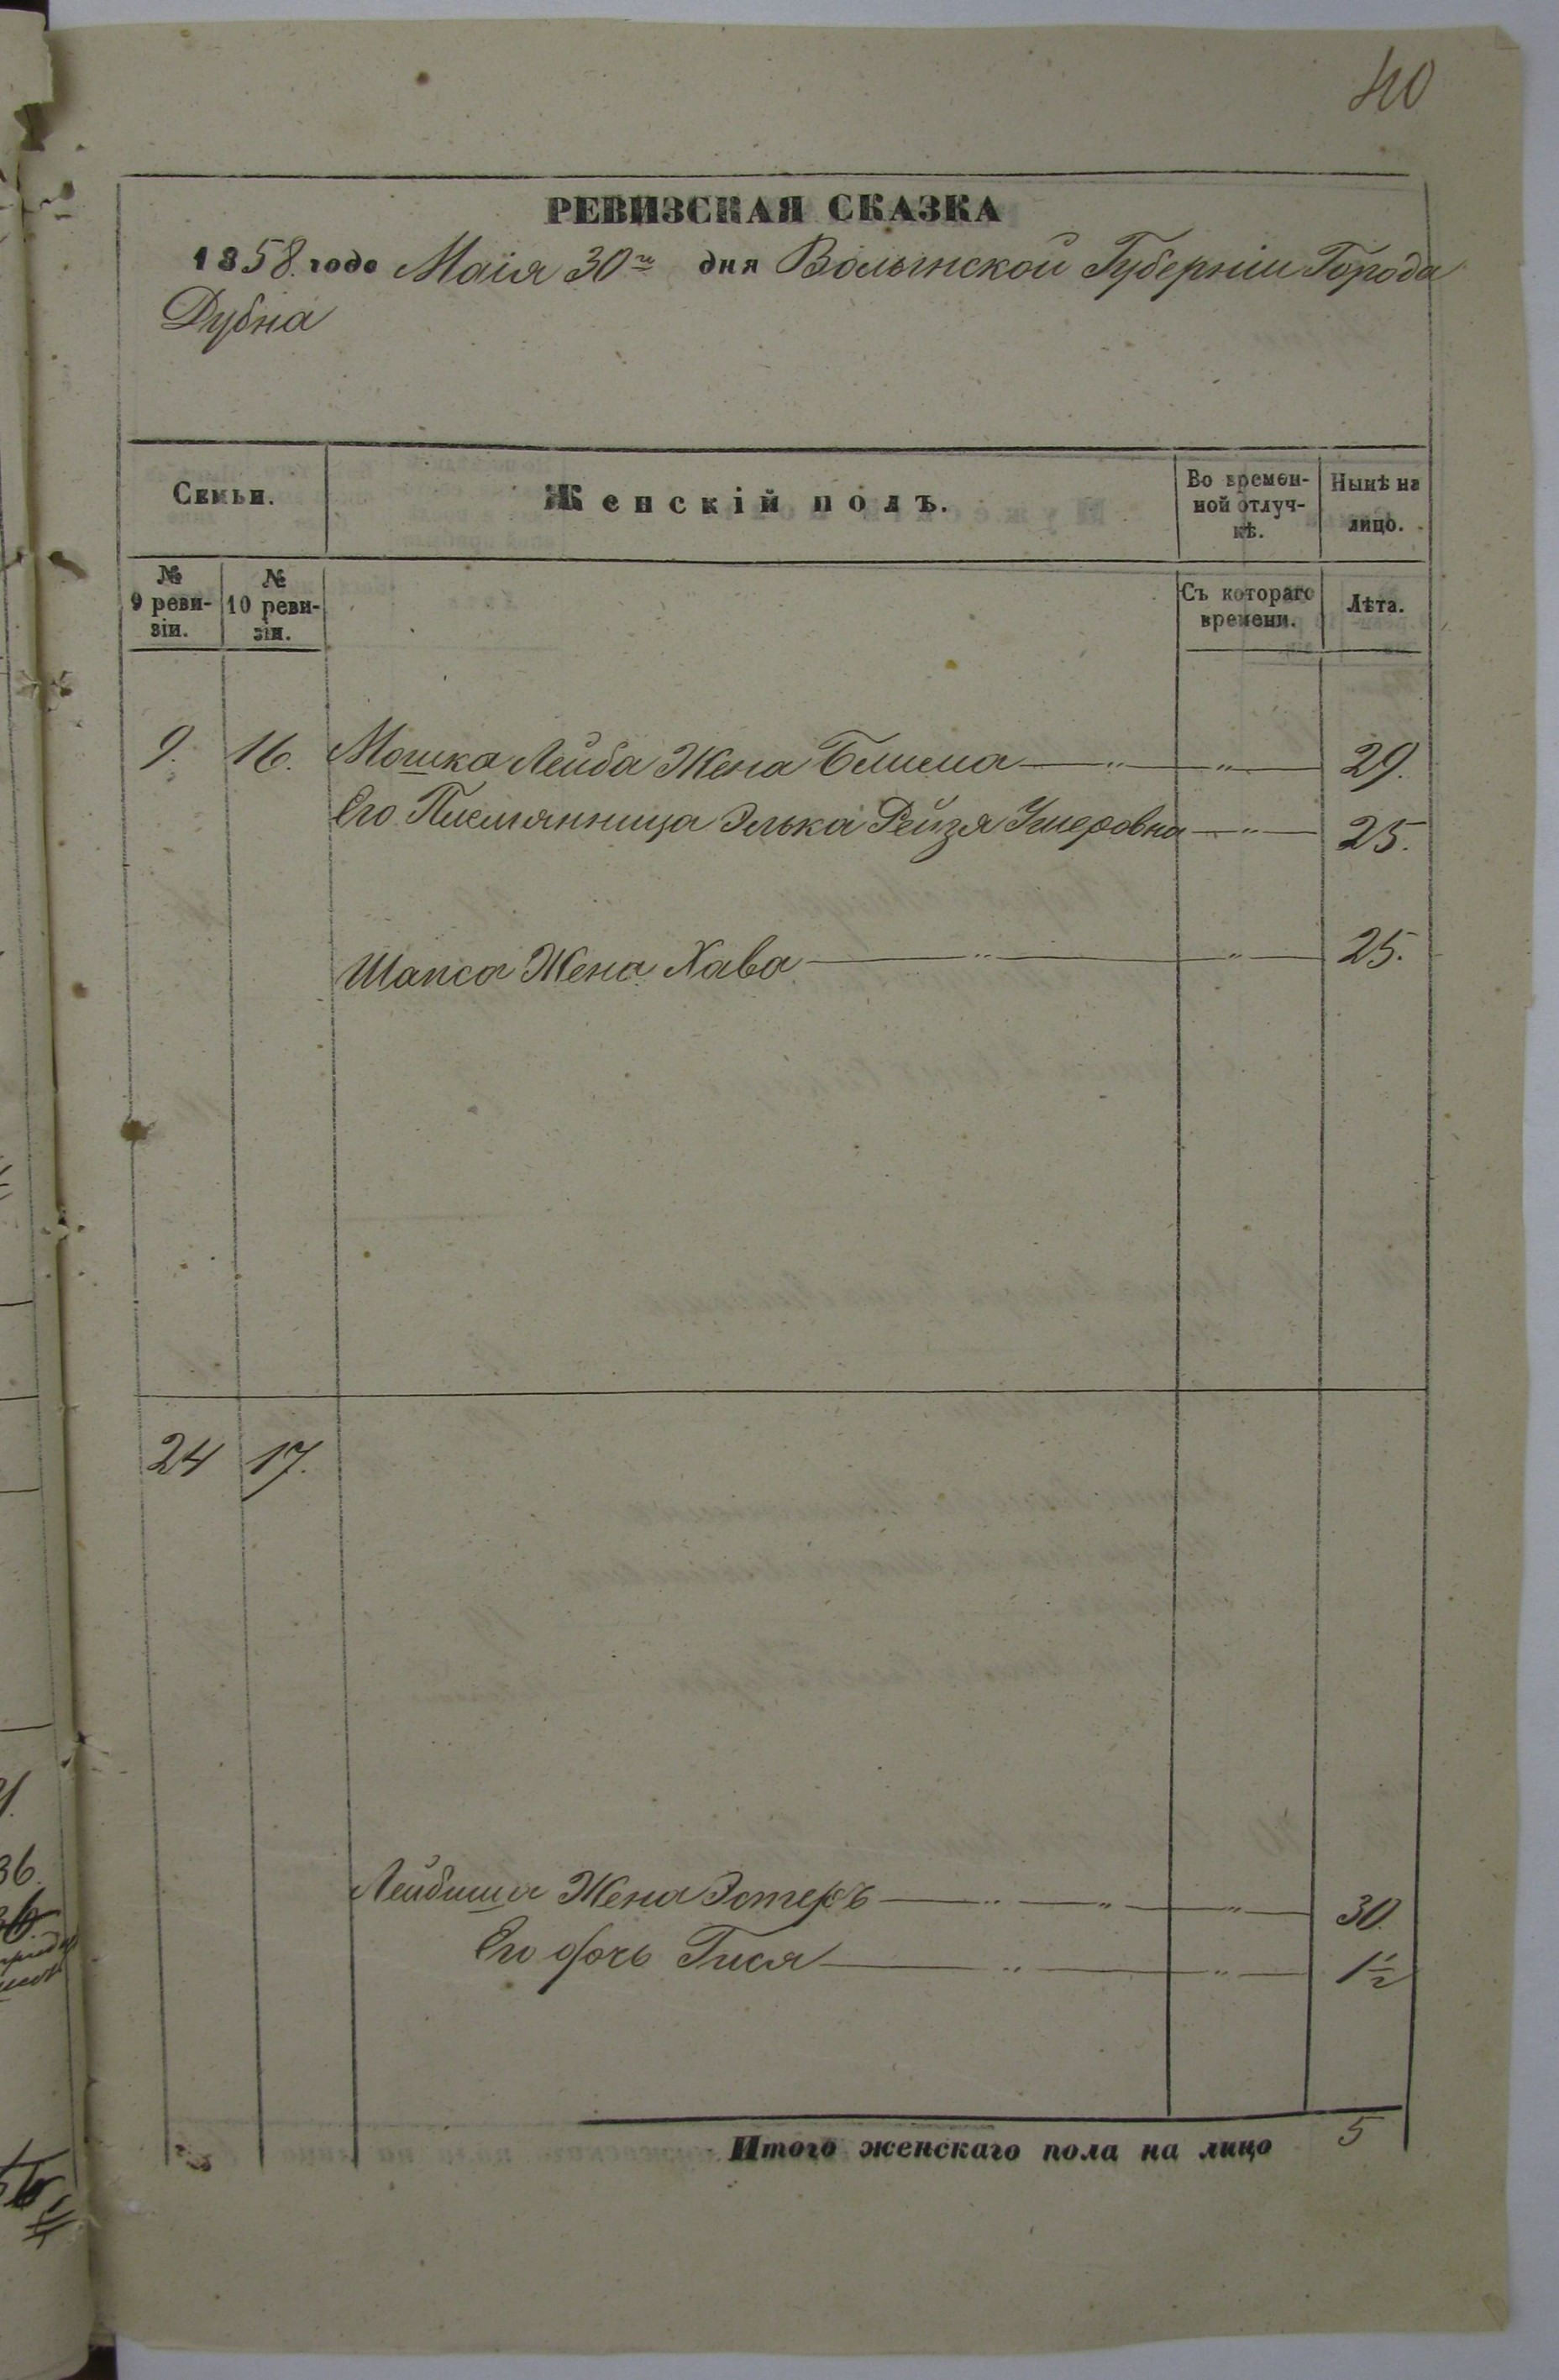 40
РЕВИЗСКАЯ СКАЗКА
1858. года Маія 30го дня Волынской Губерніи Города
Дубна
Семьи.
Женскій полъ.
Во времен-
ной отлуч-
кѣ.
Нынѣ на
лицо.
№
9 реви-
зіи.
№
10 реви-
зіи.
Съ котораго
времени.
Лѣта.
9. 16. Мошка Лейба Жена Блима 29.
Его Племянница Элька Рейзя Ушеровна 25.
Шапса Жена Хава 25.
24 17.
Лейбиша Жена Эстеръ 30.
Его дочь Гися 1½
Итого женскаго пола на лицо 5